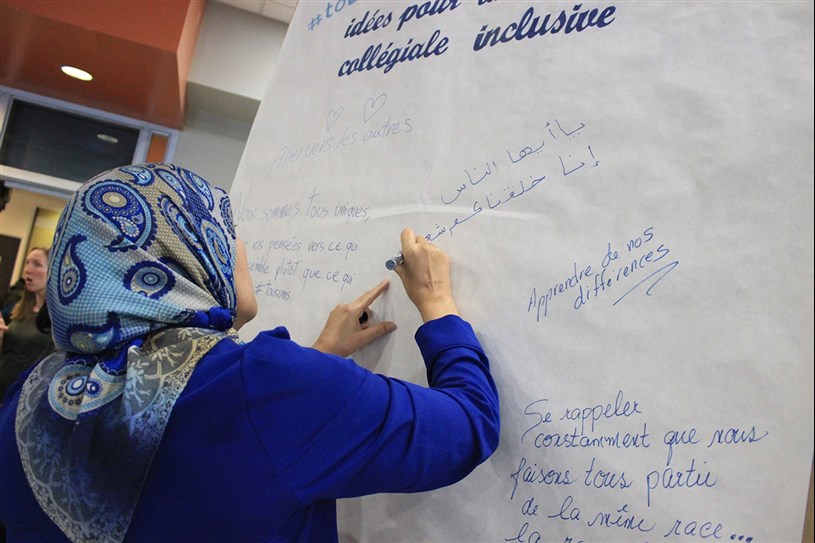 idées pour
collégiale inclusive
Aller vers les autres
Nous sommes tous uniques,
nos pensées vers ce qu
semble plutôt que ce qui
#tousunis
يا أيها الناس
إنا خلقناكم شع
Apprendre de nos
différences
Se rappeler
constamment que nous
faisons tous partie
de la même race...
la